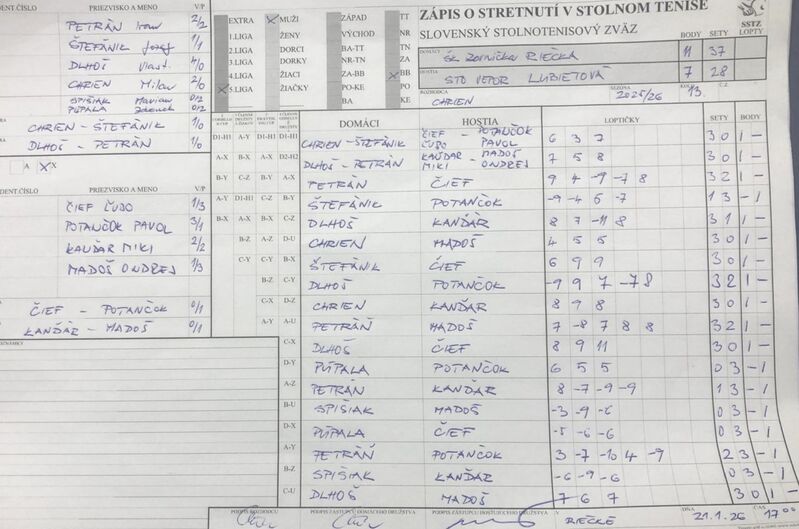 ZÁPIS O STRETNUTÍ V STOLNOM TENISE
SLOVENSKÝ STOLNOTENISOVÝ ZVÄZ
SSTZ
DOMÁCI ŠK ZORNIČKA RIEČKA
HOSTIA STO VEPOR ĽUBIETOVÁ
BODY SETY LOPTY
11 37
7 28
ROZHODCA CHRIEN
SEZÓNA 2025/26
Č.Z. 13.
EXTRA
1.LIGA
2.LIGA
3.LIGA
4.LIGA
x 5.LIGA
x MUŽI
ŽENY
DORCI
DORKY
ŽIACI
ŽIAČKY
ZÁPAD
VÝCHOD
BA-TT
NR-TN
ZA-BB
PO-KE
BA
TT
NR
TN
ZA
x BB
PO
KE
IDENT.ČÍSLO PRIEZVISKO A MENO V/P
PETRÁN Ivan 2/2
ŠTEFÁNIK Jozef 1/1
DLHOŠ Vlast. 4/0
CHRIEN Milan 2/0
SPIŠIAK Marian 0/2
PÚPALA Zdenek 0/2
CHRIEN - ŠTEFÁNIK 1/0
DLHOŠ - PETRÁN 1/0
A x X
IDENT.ČÍSLO PRIEZVISKO A MENO V/P
ČIEF ĽUBO 1/3
POTANČOK PAVOL 3/1
KANĎÁR MIKI 2/2
MADOŠ ONDREJ 1/3
ČIEF - POTANČOK 0/1
KANĎÁR - MADOŠ 0/1
POZNÁMKY
DOMÁCI HOSTIA LOPTIČKY SETY BODY
D1-H1 A-Y D1-H1 D1-H1 CHRIEN-ŠTEFÁNIK ČIEF ĽUBO - POTANČOK PAVOL 6 3 7 3 0 1 -
A-X B-X A-X D2-H2 DLHOŠ - PETRÁN KANĎÁR MIKI - MADOŠ ONDREJ 7 5 8 3 0 1 -
B-Y C-Z B-Y A-X PETRÁN ČIEF 9 4 -9 -7 8 3 2 1 -
A-Y D1-H1 C-Z B-Y ŠTEFÁNIK POTANČOK -9 -4 6 -7 1 3 - 1
B-X A-X B-X C-Z DLHOŠ KANĎÁR 8 7 -11 8 3 1 1 -
B-Z A-Z D-U CHRIEN MADOŠ 4 5 5 3 0 1 -
C-Y C-Y B-X ŠTEFÁNIK ČIEF 6 9 9 3 0 1 -
B-Z C-Y DLHOŠ POTANČOK -9 9 7 -7 8 3 2 1 -
C-X D-Z CHRIEN KANĎÁR 8 9 8 3 0 1 -
A-Y A-U PETRÁN MADOŠ 7 -8 7 8 8 3 2 1 -
C-X DLHOŠ ČIEF 8 9 11 3 0 1 -
D-Y PÚPALA POTANČOK 6 5 5 0 3 - 1
A-Z PETRÁN KANĎÁR 8 -7 -9 -9 1 3 - 1
B-U SPIŠIAK MADOŠ -3 -9 -6 0 3 - 1
D-X PÚPALA ČIEF -5 -6 -6 0 3 - 1
A-Y PETRÁN POTANČOK 3 -7 -10 4 -9 2 3 - 1
B-Z SPIŠIAK KANĎÁR -6 -9 -6 0 3 - 1
C-U DLHOŠ MADOŠ 7 6 7 3 0 1 -
PODPIS ROZHODCU
PODPIS ZÁSTUPCU DOMÁCEHO DRUŽSTVA
PODPIS ZÁSTUPCU HOSŤUJÚCEHO DRUŽSTVA
V RIEČKE
DŇA 21.1.26
ČAS 17 00